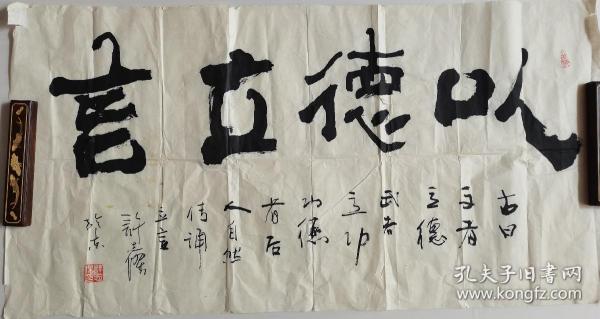 以德立言
古曰
文者
立德
武者
立功
功德
者后
人自然
传诵
立言
孔夫子旧书网
www.kongfz.com